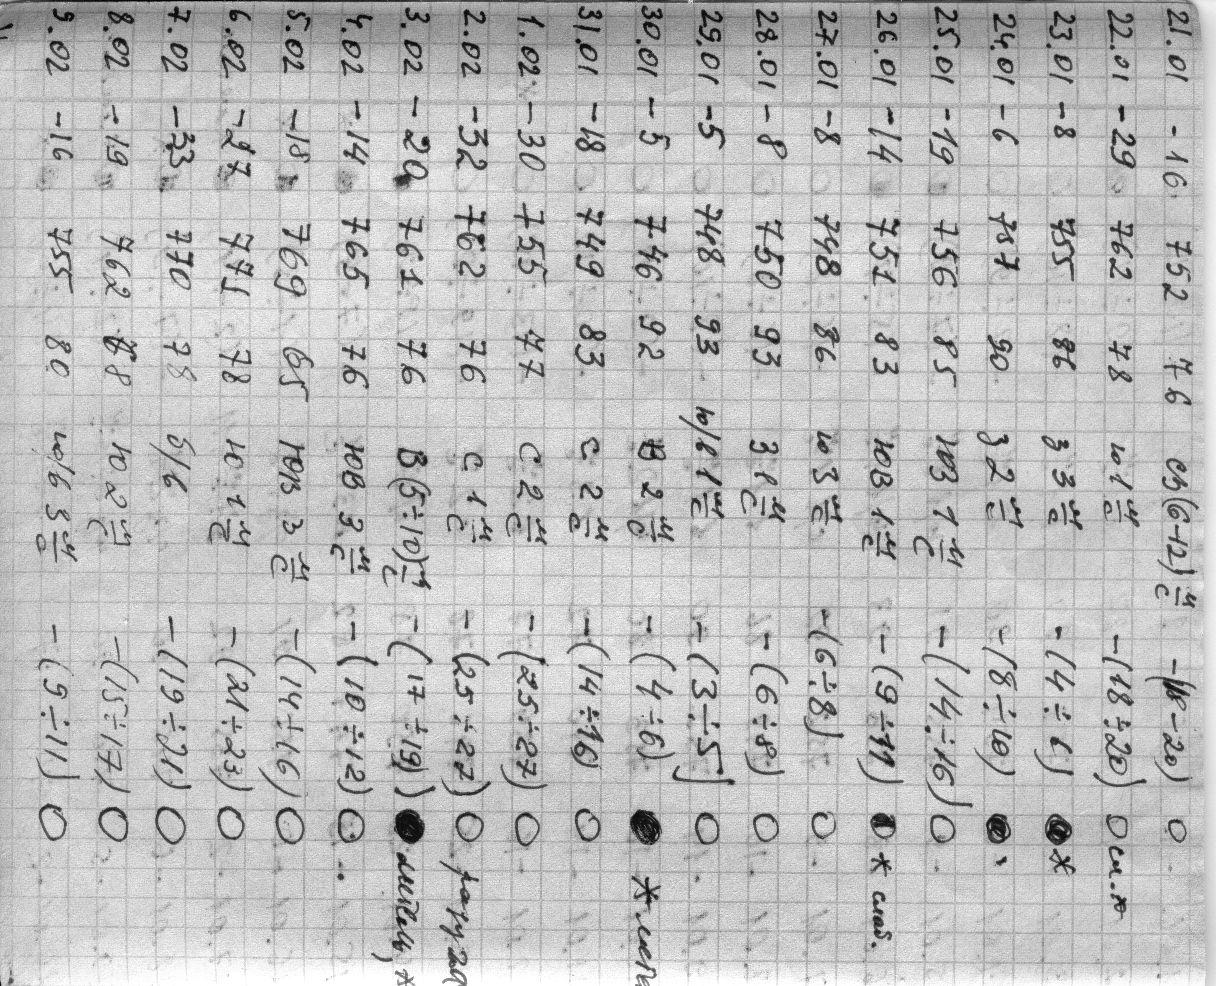 21.01 -16 752 76 сз(6÷12) м/с -(18-20) ○
22.01 -29 762 78 ю 1 м/с -(18÷20) ○ сл. *
23.01 -8 755 86 з 3 м/с -(4÷6) ● *
24.01 -6 757 90 з 2 м/с -(8÷10) ●
25.01 -19 756 85 юз 1 м/с -(14÷16) ○
26.01 -14 751 83 юв 1 м/с -(9÷11) ● * слаб.
27.01 -8 748 86 ю 3 м/с -(6÷8) ○
28.01 -8 750 93 з 1 м/с -(6÷8) ○
29.01 -5 748 93 ю/в 1 м/с -(3÷5) ○
30.01 -5 746 92 в 2 м/с -(4÷6) ● *
31.01 -18 749 83 с 2 м/с -(14÷16) ○
1.02 -30 755 77 с 2 м/с -(25÷27) ○
2.02 -32 762 76 с 1 м/с -(25÷27) ○
3.02 -20 761 76 в (5÷10) м/с -(17÷19) ● *
4.02 -14 765 76 юв 3 м/с -(10÷12) ○
5.02 -18 769 65 юв 3 м/с -(14÷16) ○
6.02 -27 771 78 ю 1 м/с -(21÷23) ○
7.02 -33 770 78 б/в -(19÷21) ○
8.02 -19 762 68 ю 2 м/с -(15÷17) ○
9.02 -16 755 80 ю/в 3 м/с -(9÷11) ○